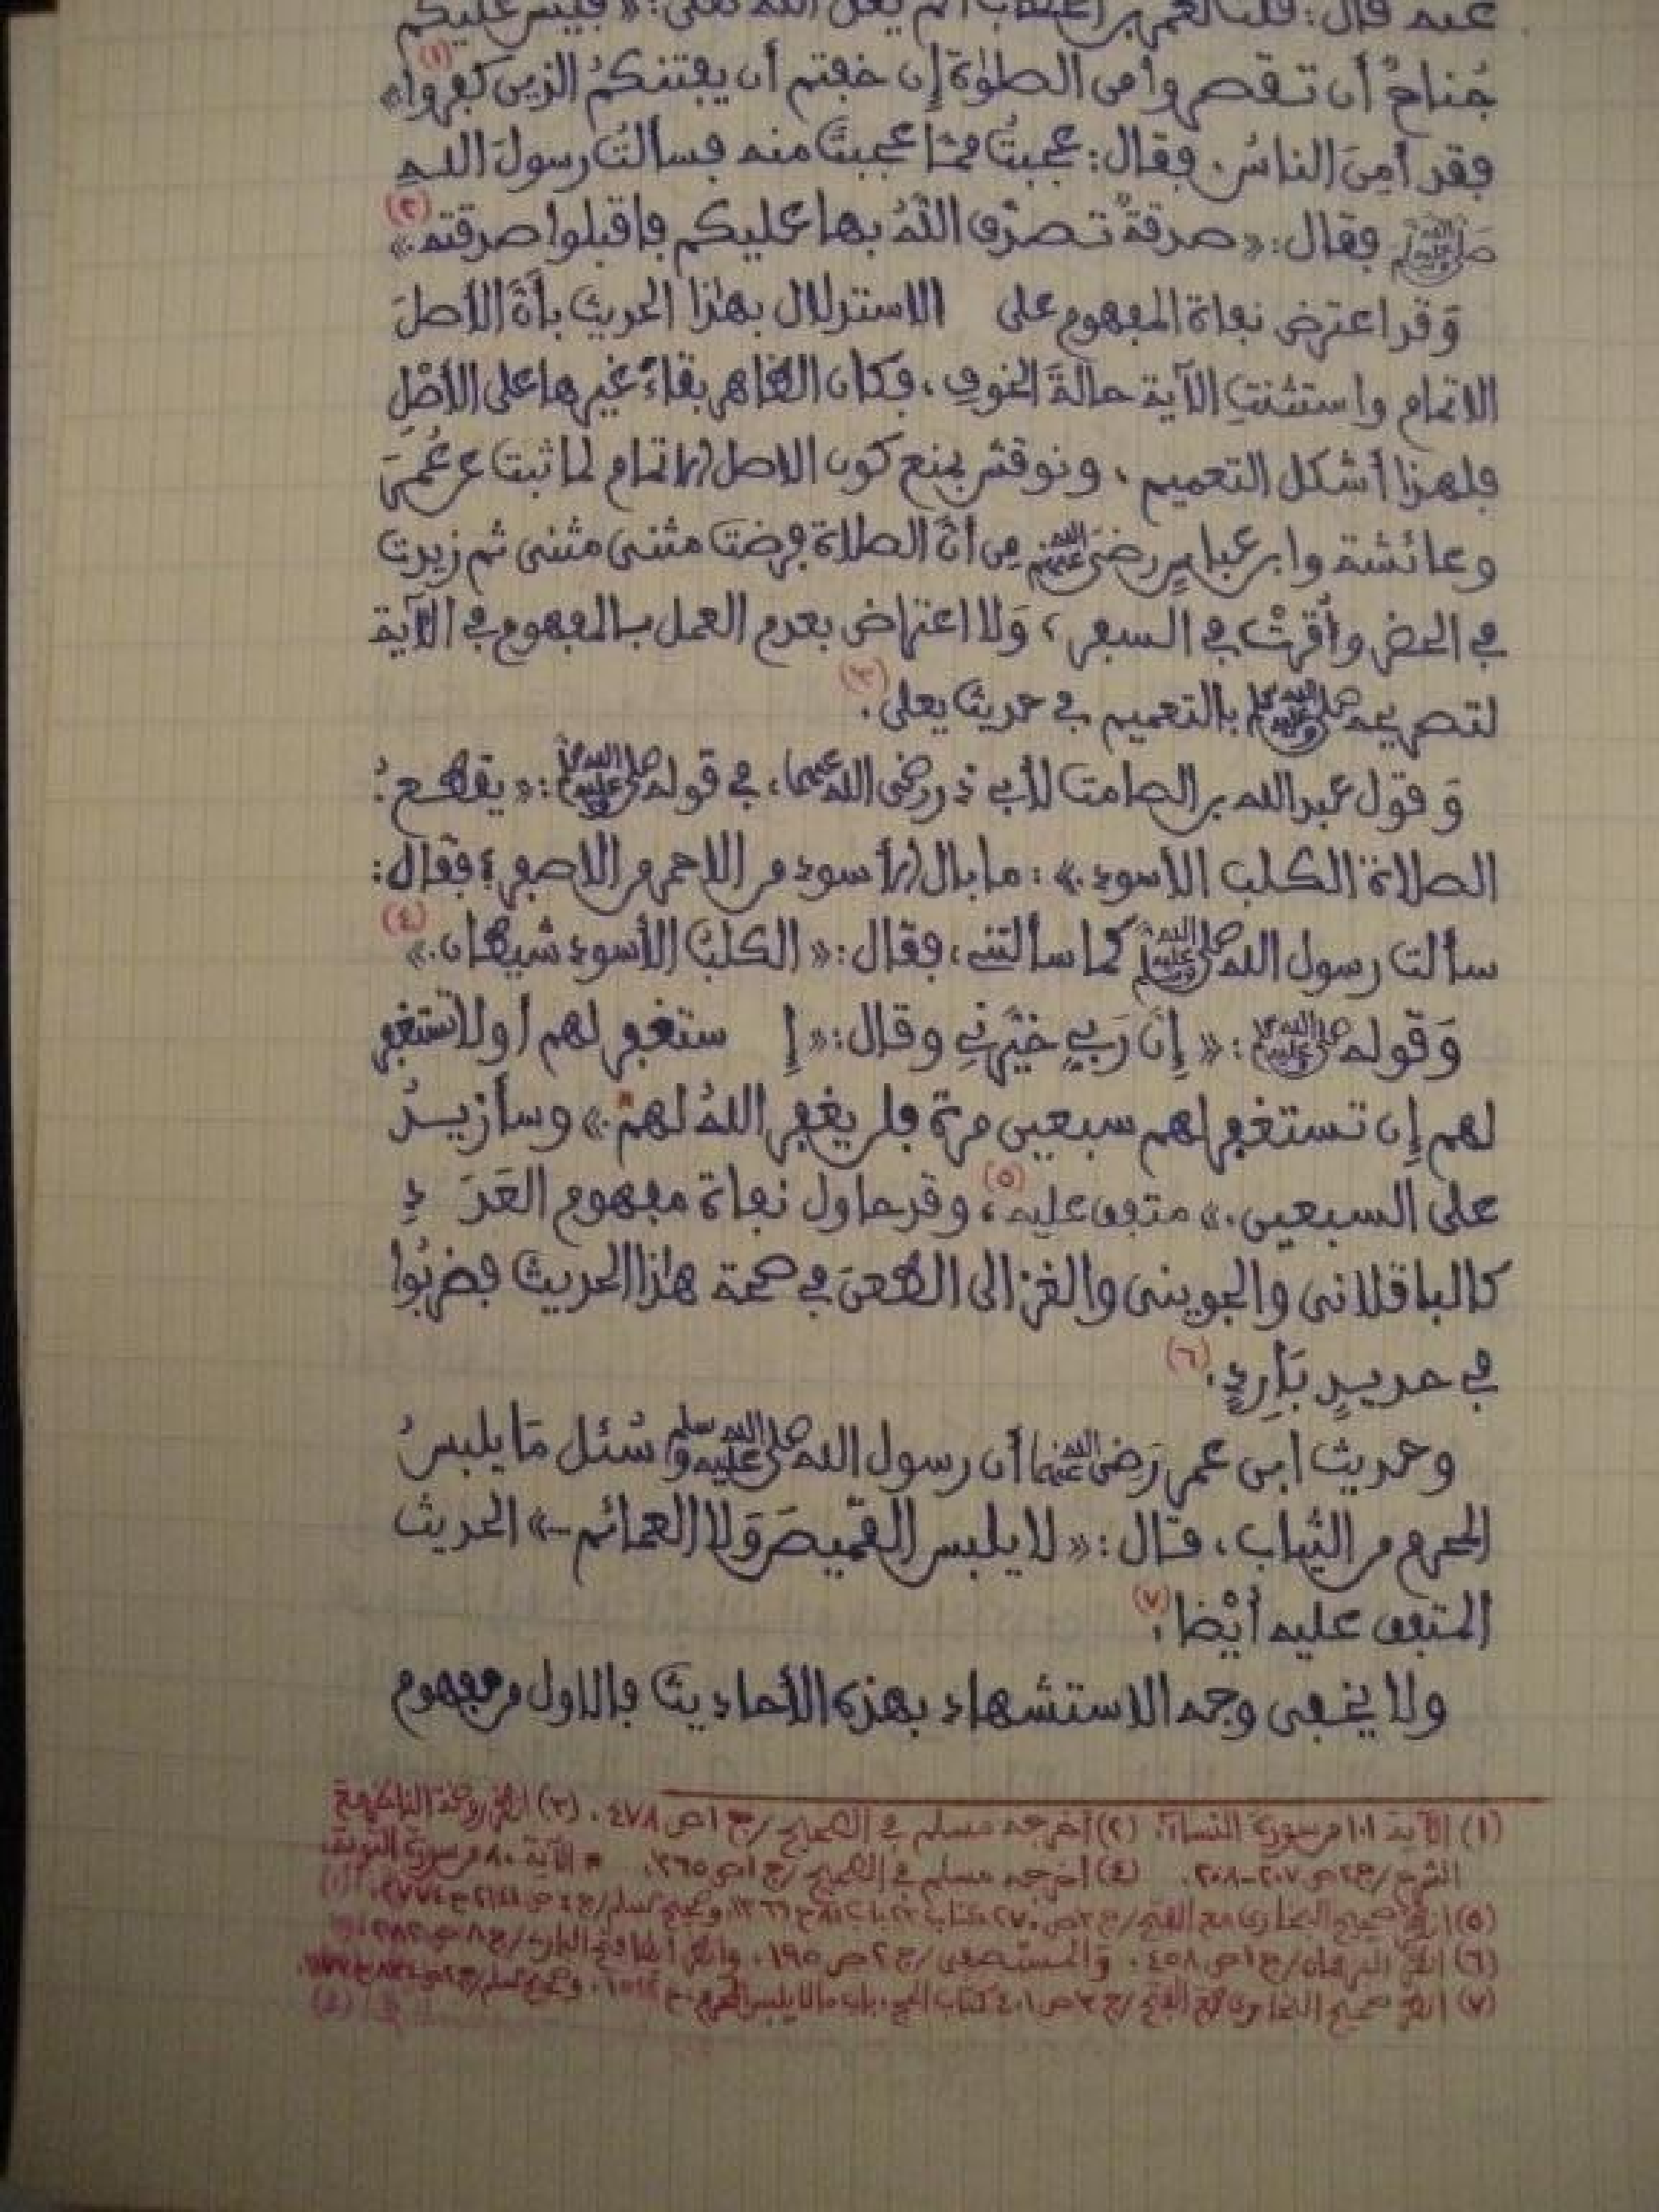 عنه قال: قلت لعمر بن الخطاب ألم يقل الله تعلى: «فليس عليكم
جُناحٌ أن تقصروا من الصلوٰة إن خفتم أن يفتنكمُ الذين كفروا» (١)
فقد أمِنَ الناسُ. فقال: عجبتُ ممّا عجبتَ منه فسألتُ رسولَ اللهِ
ﷺ فقال: «صدقةٌ تصدّق اللهُ بها عليكم فاقبلوا صدقته.» (٢)
وَقد اعترض نفاة المفهوم على الاستدلال بهٰذا الحديث بأنّ الأصلَ
الاتمام واستثنتِ الآية حالةَ الخوفِ، فكان الظاهر بقاءُ غيرها على الأصْلِ
فلهذا أشكل التعميم، ونوقش بمنع كون الاصل الاتمام لما ثبت عن عُمَرَ
وعائشة وابن عباسٍ رضي الله عنهم من أنّ الصلاة فرضت مثنى مثنى ثم زيدت
في الحضر وأُقرتْ في السفر، وَلا اعتراض بعدم العمل بالمفهوم في الآية
لتصريحه ﷺ بالتعميم في حديث يعلى. (٣)
وَقول عبد الله بن الصامت لأبي ذر رضي الله عنهما، في قوله ﷺ: «يقطعُ
الصلاةَ الكلب الأسود.»: ما بال الأسود من الاحمر من الاصفر؟ فقال:
سألت رسول الله ﷺ كما سألتني، فقال: «الكلبُ الأسود شيطان.» (٤)
وَقوله ﷺ: «إنّ رَبي خيّرني وقال: «إ ستغفر لهم أو لا تستغفر
لهم إن تستغفر لهم سبعين مرة فلن يغفر اللهُ لهم*.» وسأزيدُ
على السبعين.» متفق عليه (٥)، وقد حاول نفاة مفهوم العَدَ دِ
كالباقلاني والجويني والغزالي الطعنَ في صحة هٰذا الحديث فضربُوا
في حديدٍ بَاردٍ. (٦)
وحديث ابن عمر رَضي الله عنهما أن رسول الله صلى الله عليه وسلم سُئل مَا يلبسُ
المحرم من الثياب، قال: «لا يلبس القميصَ وَلا العمائم-» الحديث
المتفق عليه أيْضا. (٧)
ولا يخفى وجه الاستشهاد بهذه الأحاديث فالاول من مفهوم
(١) الآية ١٠١ من سورة النساء. (٢) أخرجه مسلم في الصحيح/ج ١ ص ٤٧٨. (٣) انظر روضة الناظر مع
الشرح/ج ٢ ص ٢٠٧-٢٠٨. (٤) أخرجه مسلم في الصحيح/ج ١ ص ٣٦٥. * الآية ٨٠ من سورة التوبة.
(٥) انظر صحيح البخاري مع الفتح/ج ٣ ص ٢٧٠ كتاب ٢٣ باب
(٦) انظر البرهان/ج ١ ص ٤٥٨. والمستصفى/ج ٢ ص ١٩٥. وانظر أيضا فتح الباري/ج ٨ ص
(٧) انظر صحيح البخاري مع الفتح/ج ٣ ص ٤٠١ كتاب الحج، باب ما لا يلبس المحرم